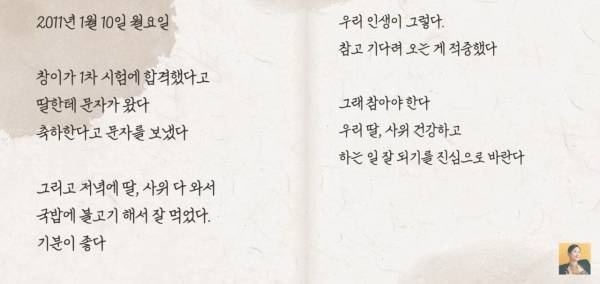 2011년 1월 10일 월요일
창이가 1차 시험에 합격했다고
딸한테 문자가 왔다
축하한다고 문자를 보냈다
그리고 저녁에 딸, 사위 다 와서
국밥에 불고기 해서 잘 먹었다.
기분이 좋다
우리 인생이 그렇다.
참고 기다려 오는 게 적중했다
그래 참아야 한다
우리 딸, 사위 건강하고
하는 일 잘 되기를 진심으로 바란다